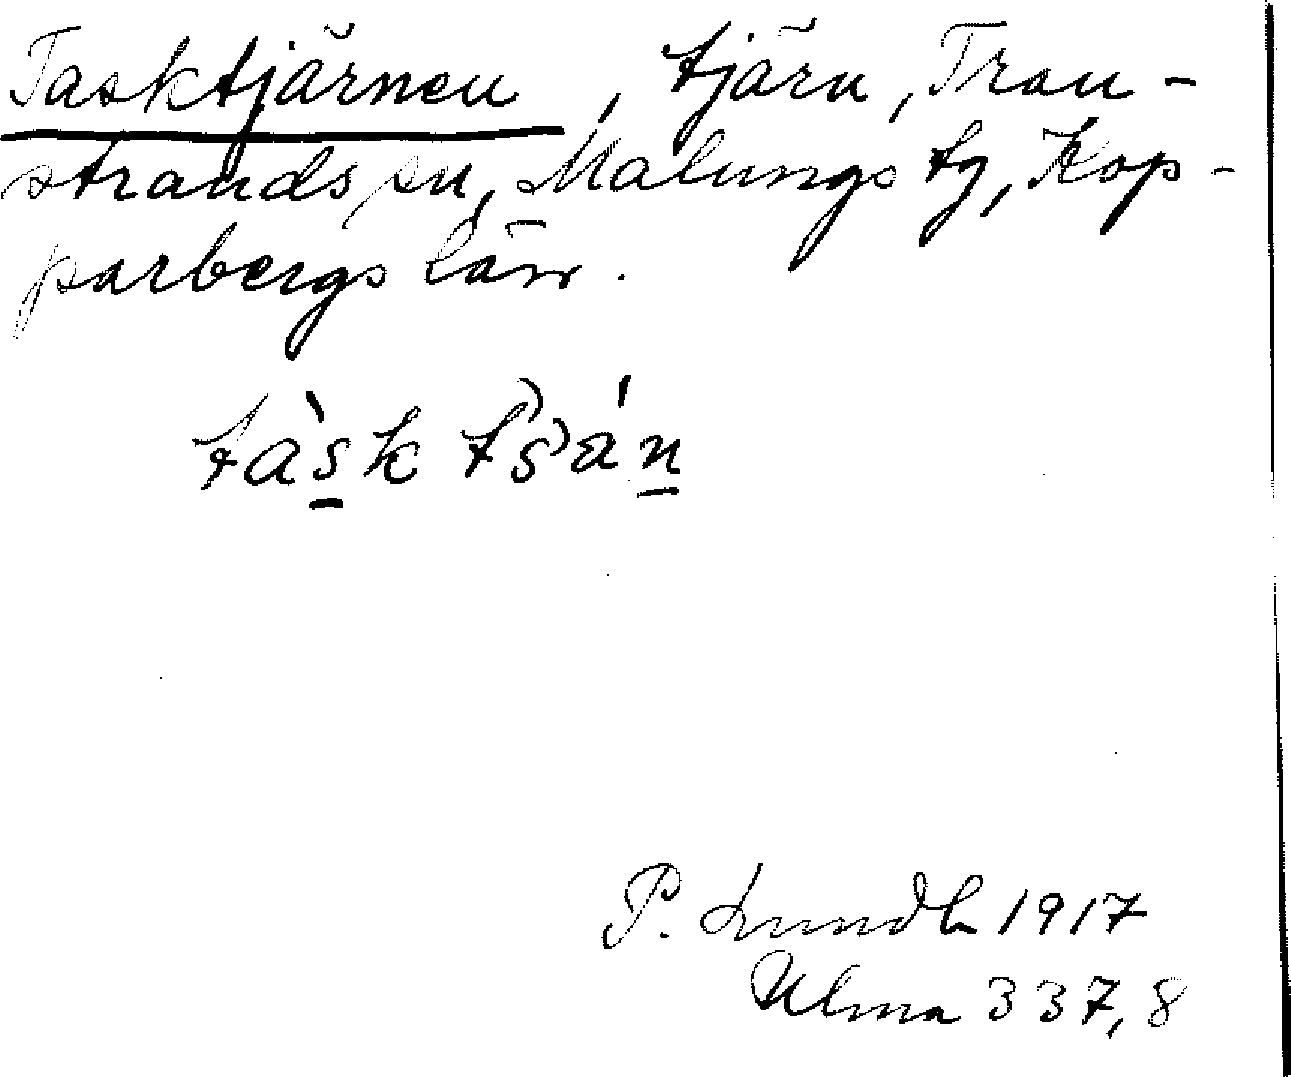 Tasktjärnen, tjärn, Tran-
strands sn, Malungs tg, Kop-
parbergs län.
tàsk tsán
P. Lundbl 1917
Ulma 337,8